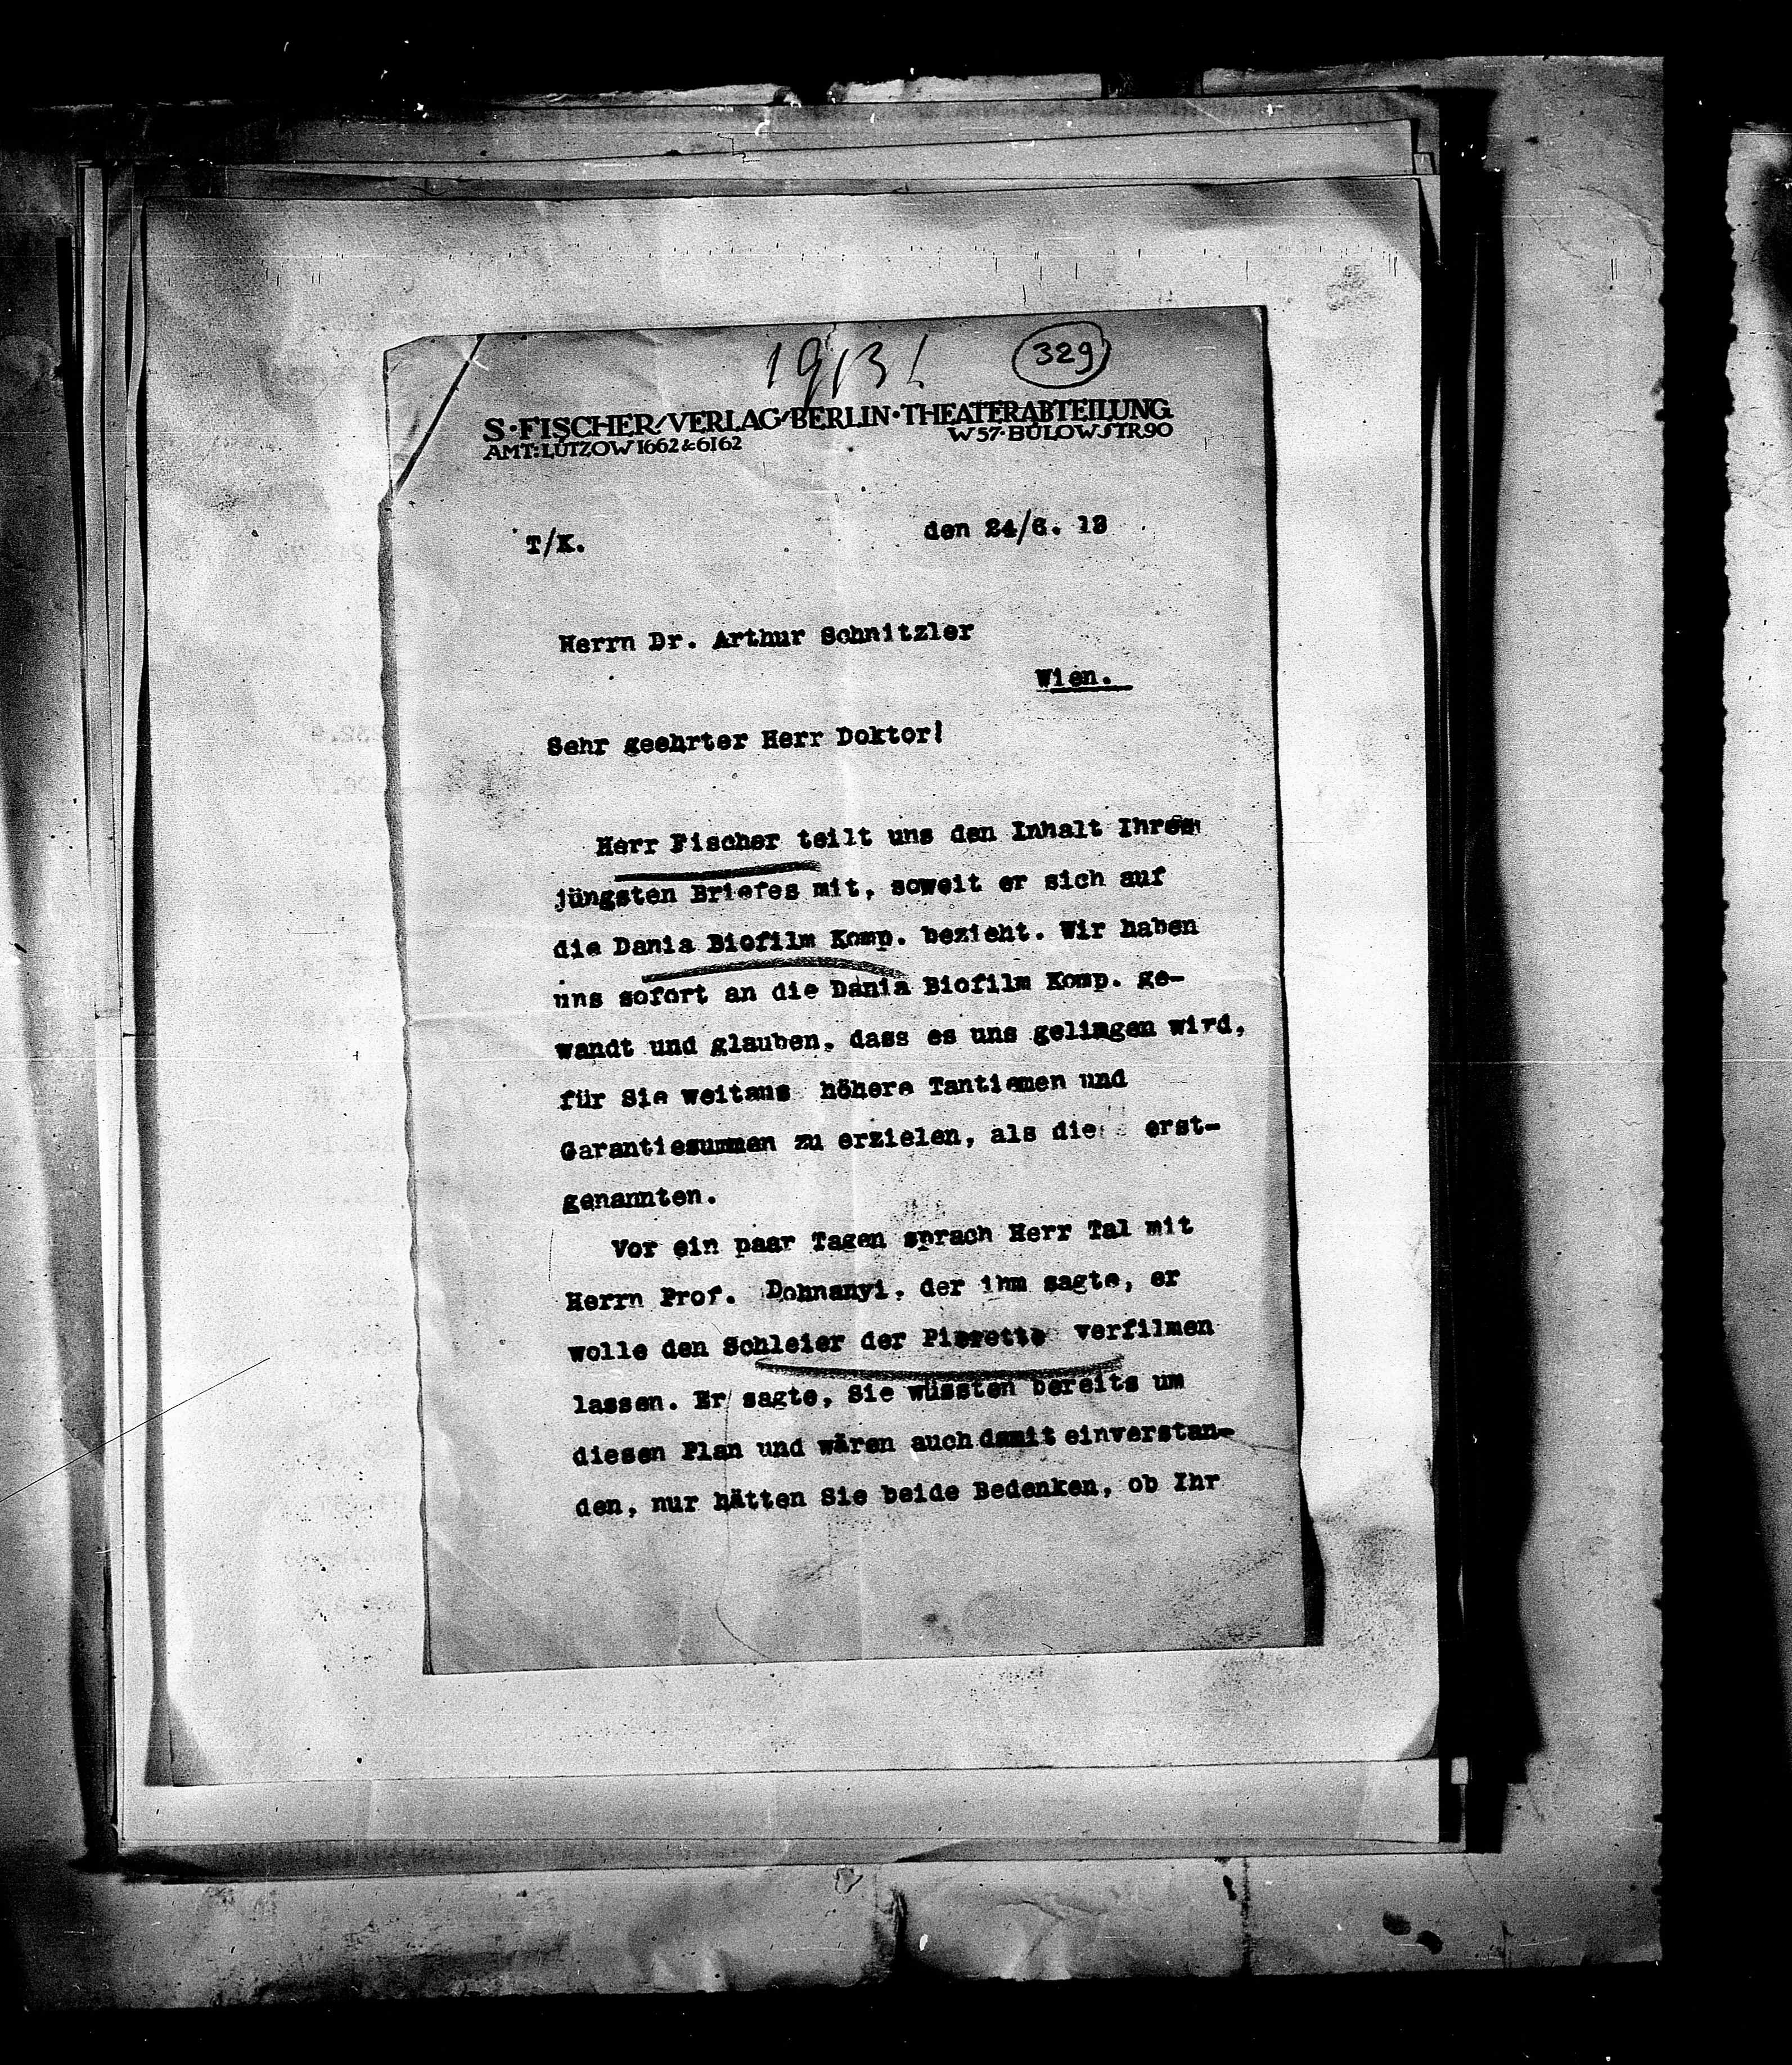 329
S·FISCHER/VERLAG/BERLIN·THEATERABTEILUNG
AMT: LÜTZOW 1662 & 6162
W 57·BÜLOWSTR.90
T/K.
den 24/6. 13
Herrn Dr. Arthur Schnitzler
Wien.
Sehr geehrter Herr Doktor!
Herr Fischer teilt uns den Inhalt Ihres
jüngsten Briefes mit, soweit er sich auf
die Dania Biofilm Komp. bezieht. Wir haben
uns sofort an die Dania Biofilm Komp. ge-
wandt und glauben, dass es uns gelingen wird,
für Sie weitaus höhere Tantiemen und
Garantiesummen zu erzielen, als die erst-
genannten.
Vor ein paar Tagen sprach Herr Tal mit
Herrn Prof. Dohnanyi, der ihm sagte, er
wolle den Schleier der Pierette verfilmen
lassen. Er sagte, Sie wüssten bereits um
diesen Plan und wären auch damit einverstan-
den, nur hätten Sie beide Bedenken, ob Ihr